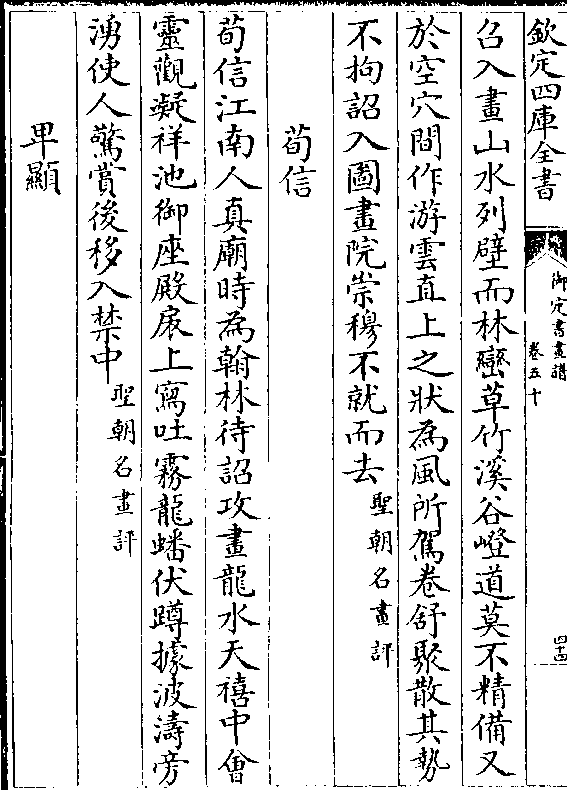 欽定四庫全書
御定書畫譜
卷五十
四十四
召入畫山水列壁而林巒草竹溪谷嶝道莫不精備又
於空穴間作游雲直上之狀為風所駕卷舒聚散其勢
不拘詔入圖畫院崇穆不就而去聖朝名畫評
荀信
荀信江南人真廟時為翰林待詔攻畫龍水天禧中會
靈觀凝祥池御座殿扆上寫吐霧龍蟠伏蹲據波濤旁
湧使人驚賞後移入禁中聖朝名畫評
卑顯